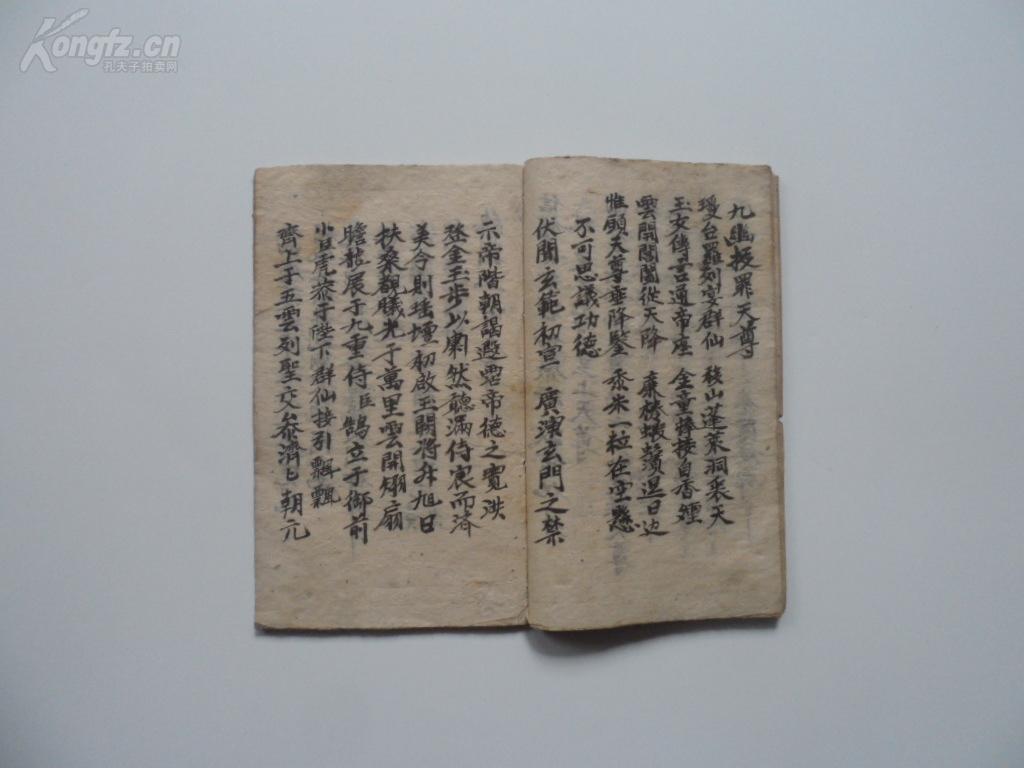 Kongfz.cn
孔夫子拍卖网
九幽拔罪天尊
瓊台羅列宴群仙 稜山蓬萊洞裊天
玉女傳言通帝座 金童捧接自香煙
雲開閶闔從天降
惟願天尊垂降鑒 黍米一粒在空懸
不可思議功德
伏聞玄範初宣 廣演玄門之禁
示帝階朝謁遐帝德之寬洪
登金玉步以肅然聽漏侍宸而濟
美今則瑤壇初啟玉闕將升旭日
扶桑觀曦光于萬里雲開雉扇
瞻龍展于九重侍臣鵠立于御前
小旦虎恭于陛下群仙接引飄飄
齊上于五雲列聖交參濟匕朝元